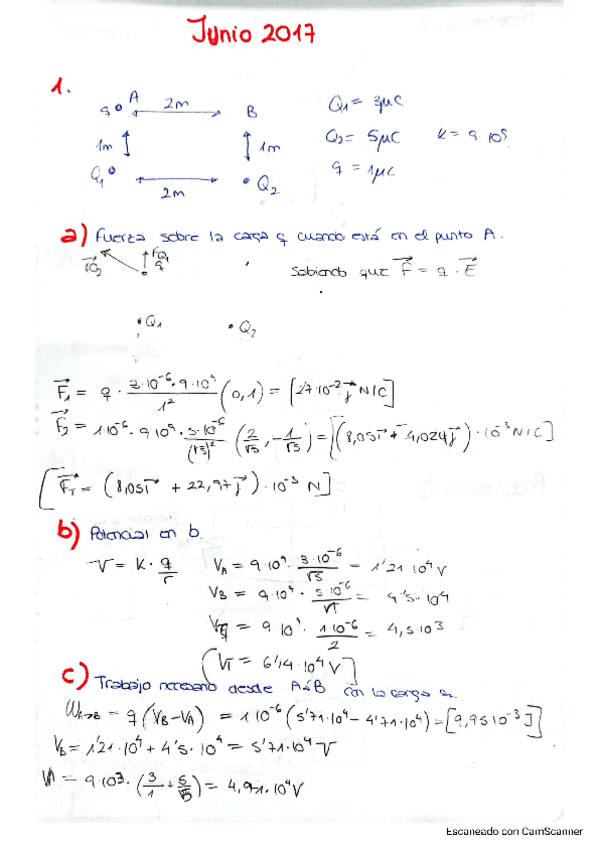 Junio 2017
1.
q A 2m B Q1 = 3μC
1m 1m Q2 = 5μC K = 9·10⁹
Q1 2m Q2 q = 1μC
a) Fuerza sobre la carga q cuando está en el punto A.
FQ2 FQ1 q Sabiendo que F = q · E
Q1 Q2
F1 = q · 3·10⁻⁶·9·10⁹/1² (0,1) = [27·10⁻³ j N/C]
F2 = 1·10⁻⁶ · 9·10⁹ · 5·10⁻⁶/(√5)² (2/√5, -1/√5) = [(8,05i - 4,024j)·10⁻³ N/C]
[FT = (8,05i + 22,97j)·10⁻³ N]
b) Potencial en b.
V = K · q/r VA = 9·10⁹ · 3·10⁻⁶/√5 = 1'21·10⁴ V
VB = 9·10⁹ · 5·10⁻⁶/√1 = 4'5·10⁴
Vq = 9·10⁹ · 1·10⁻⁶/2 = 4,5·10³
(VT = 6'14·10⁴ V]
c) Trabajo necesario desde A a B con la carga q.
WA→B = q (VB-VA) = 1·10⁻⁶ (5'71·10⁴ - 4'71·10⁴) = [9,95·10⁻³ J]
VB = 1'21·10⁴ + 4'5·10⁴ = 5'71·10⁴ V
VA = 9·10³ · (3/1 + 5/√5) = 4,71·10⁴ V
Escaneado con CamScanner